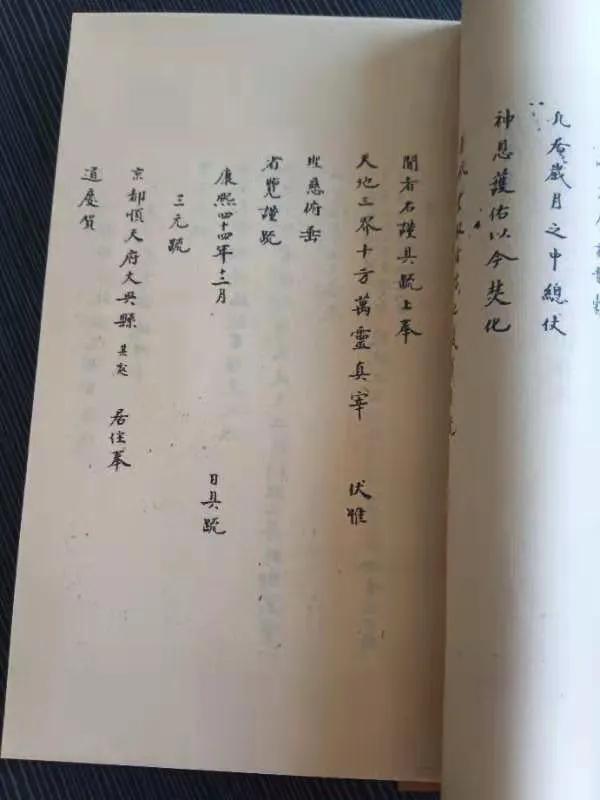 歲月之中總仗
神恩護佑以今焚化
聞者右謹具疏上奉
天地三界十方萬靈真宰 伏惟
慈俯垂
省覽謹疏
康熙四十四年十二月 日具疏
三元疏
京都順天府大興縣 某處 居住奉
道慶賀